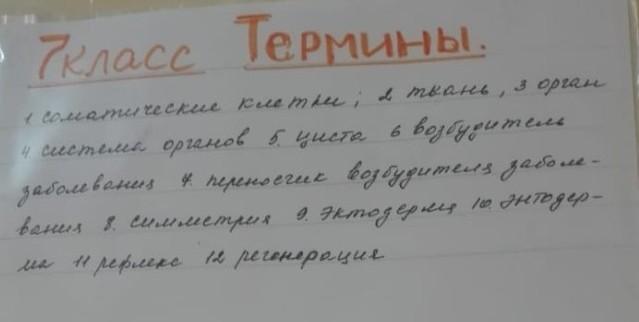 7класс Термины.
1 соматические клетки; 2 ткань, 3 орган
4 система органов 5. циста 6 возбудитель
заболевания 7. переносчик возбудителя заболе-
вания 8. симметрия 9. эктодерма 10. энтодер-
ма 11 рефлекс 12 регенерация